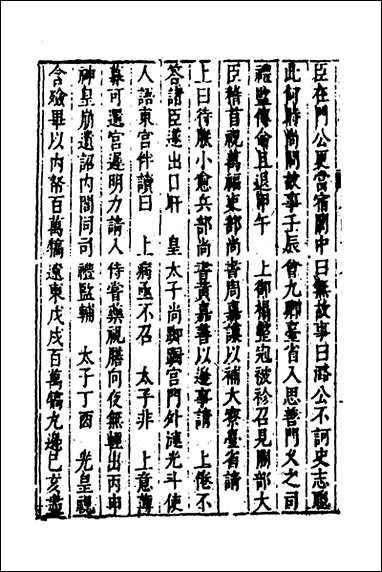 臣在門公更宜宿閣中曰無故事曰潞公不訶史志聰
此何時尚問故事壬辰會九卿臺省入思善門久之司
禮監傳俞且退甲午　上御榻整冠被袗召見閣部大
臣稽首視萬福吏部尚書周嘉謨以補大察臺省請
上曰待朕小愈兵部尚書黃嘉善以邊事請　上倦不
答諸臣遂出日旰　皇太子尚踟躕宮門外漣光斗使
人語東宮伴讀曰　上病亟不召　太子非　上意薄
暮可還宮遲明力請入侍嘗藥視膳向夜無輕出丙申
神皇崩遺詔內閣同司禮監輔　太子丁酉　光皇視
含殮畢以內帑百萬犒遼東戊戌百萬犒九邊己亥盡